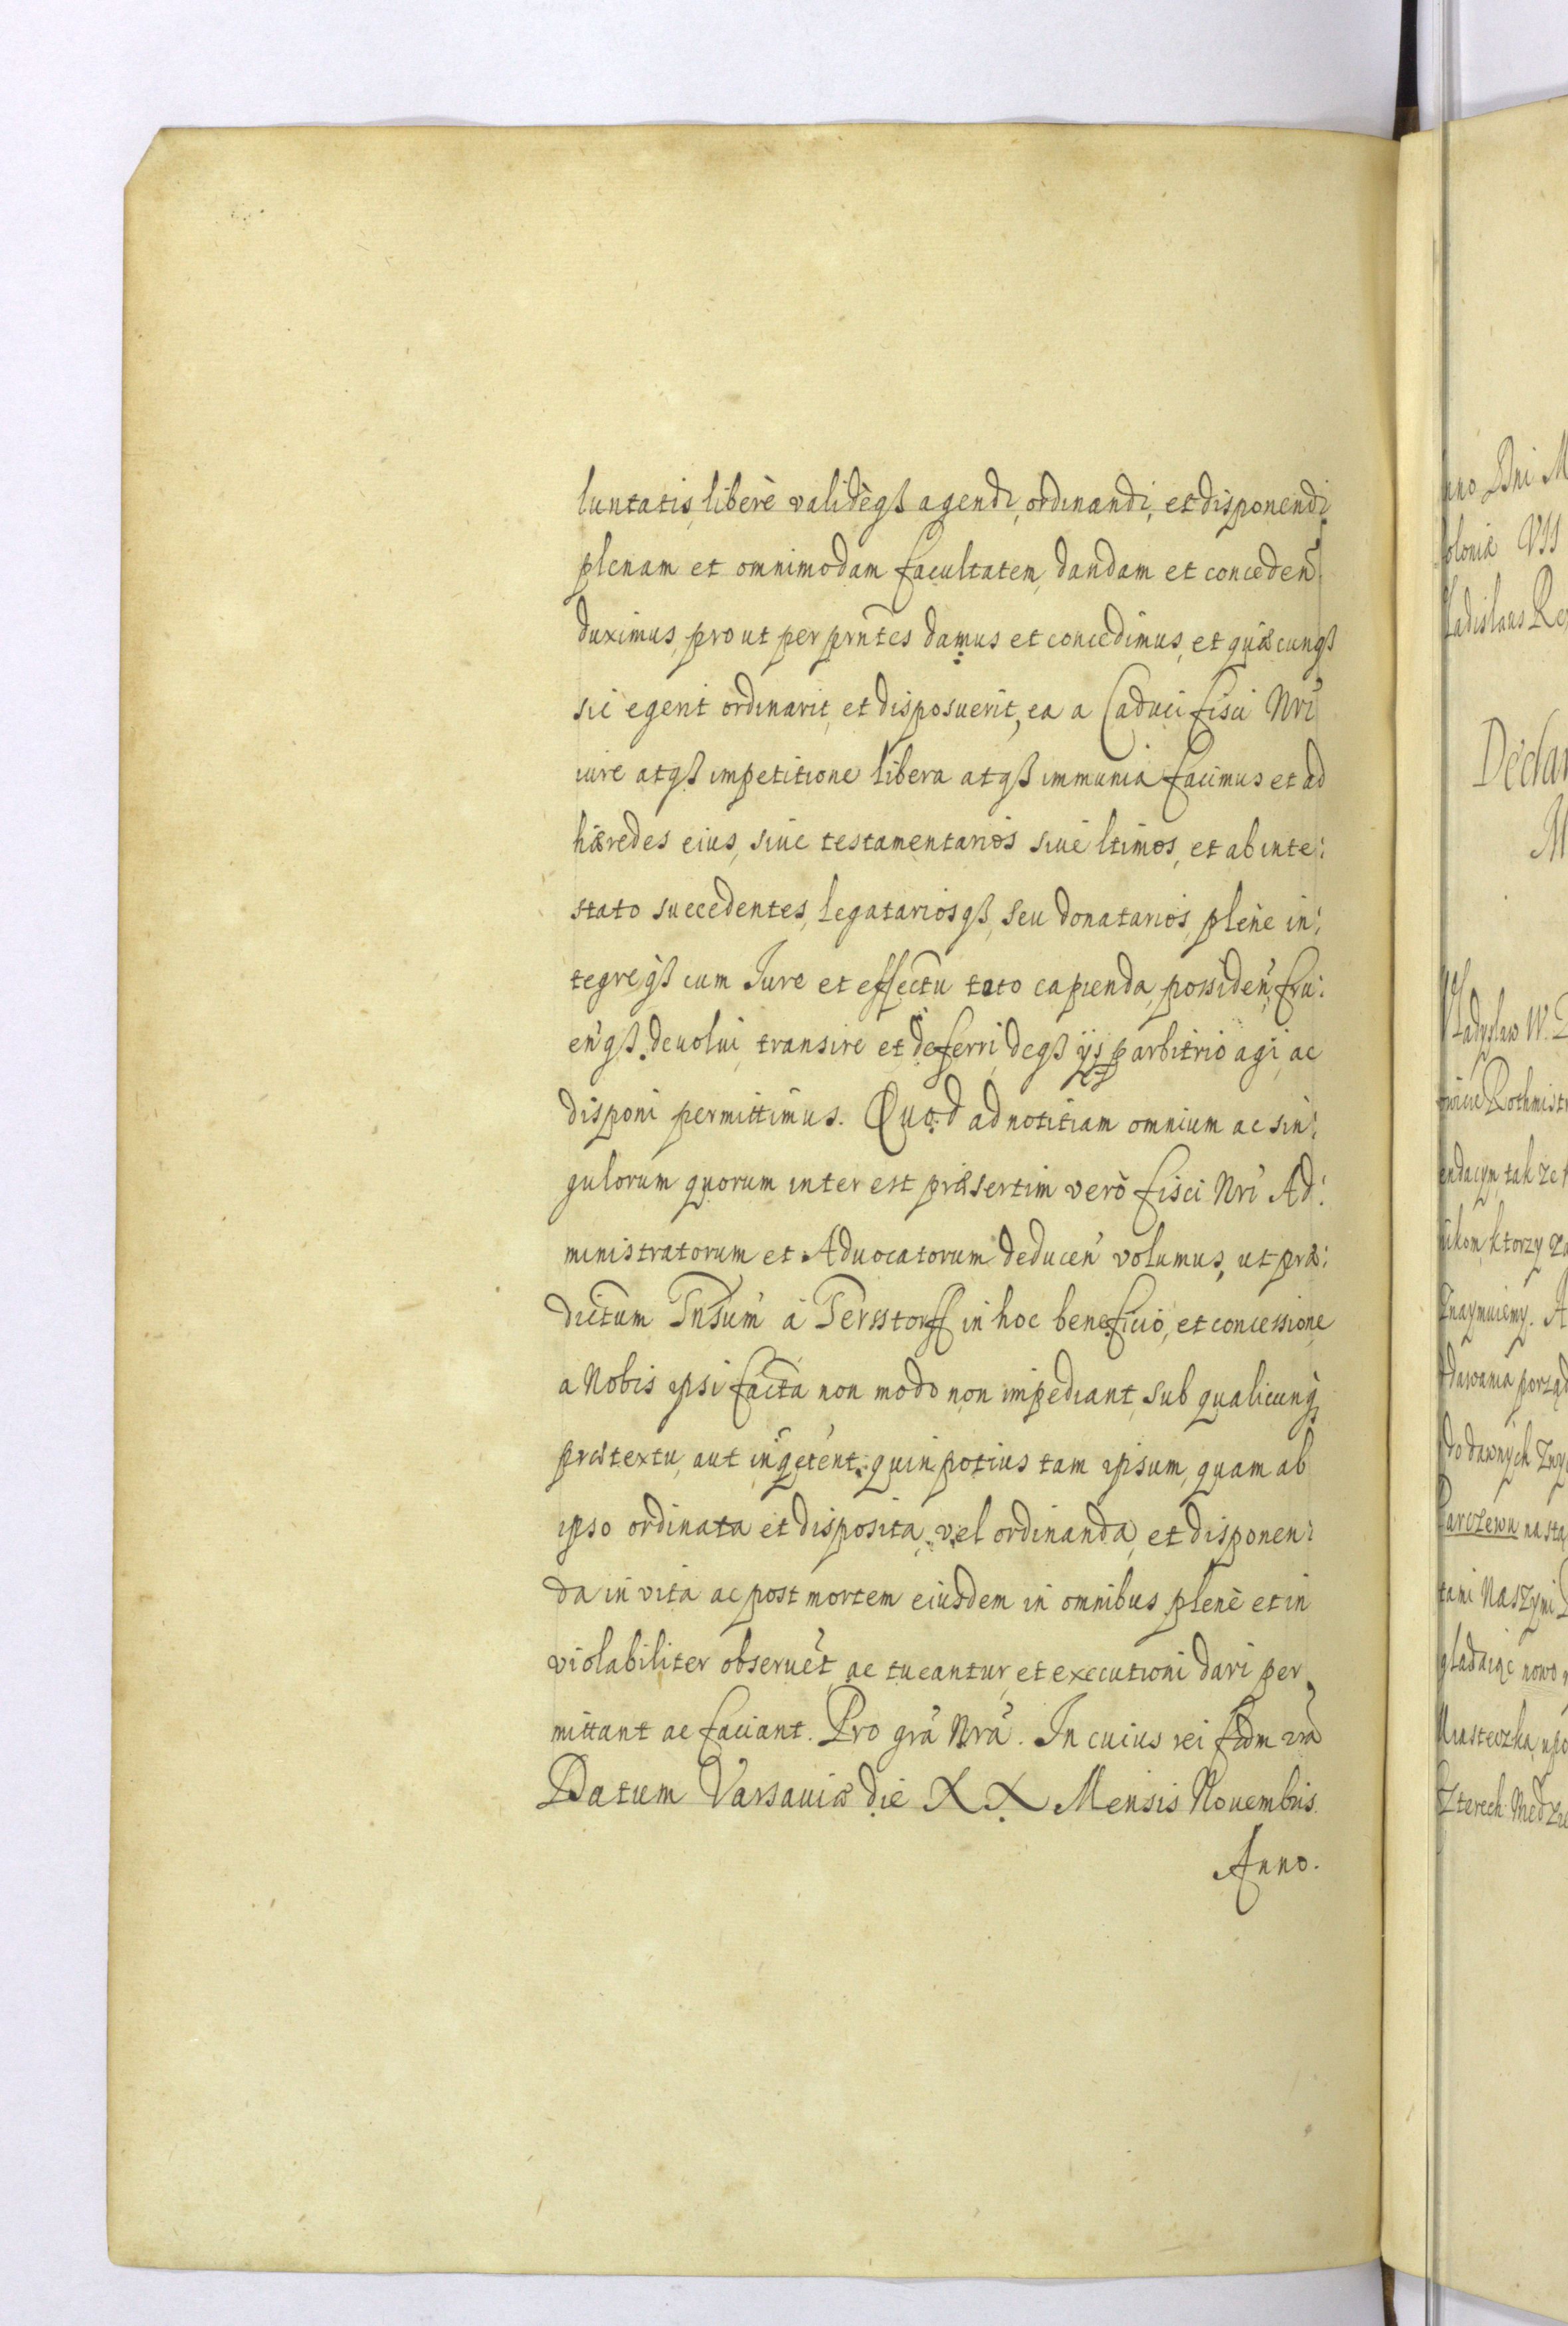 luntatis, liberè validèqß agendi, ordinandi, et disponendi
plenam et omnimodam facultatem, dandam et conceden̄
duximus, prout per prn̄tes damus et concedimus, et quæcunqß
sic egerit ordinarit, et disposuerit, ea a Caduci fisci Nri
iure atqß impetitione libera atqß immunia facimus et ad
hæredes eius, siue testamentarios siue ltimos, et ab inte:
stato succedentes, legatariosqß, seu donatarios, plenè in:
tegreqß cum Iure et effectu toto capienda, possiden̄, fru:
en̄qß devolui, transire et deferri, deqß ijs p arbitrio agi, ac
disponi permittimus. Quod ad notitiam omnium ac sin:
gulorum quorum interest præsertim verò fisci Nri Ad:
ministratorum et Aduocatorum deducen̄ volumus, ut præ:
dictum à Tersstorff in hoc beneficio, et concessione
a Nobis ipsi facta non modo non impediant, sub qualicunq
prætextu, aut inqetent, quin potius tam ipsum, quam ab
ipso ordinata et disposita, vel ordinanda, et disponen:
da in vita ac post mortem eiusdem in omnibus plenè et in
violabiliter observēt, ac tueantur, et executioni dari per
mittant ac faciant. Pro grā Nrā. In cuius rei fidm
Datum Varsauiæ die XX Mensis Nouembris
Anno.
Dni M
olonia VSS
ladislaus
Declar
ladyslaw W.
Rothmistr
tak ze
ktorzy
naymuiemy. A
dawania
do dawnych
Parczewu na sta
tami Naszymi
nowo
Miasteczka